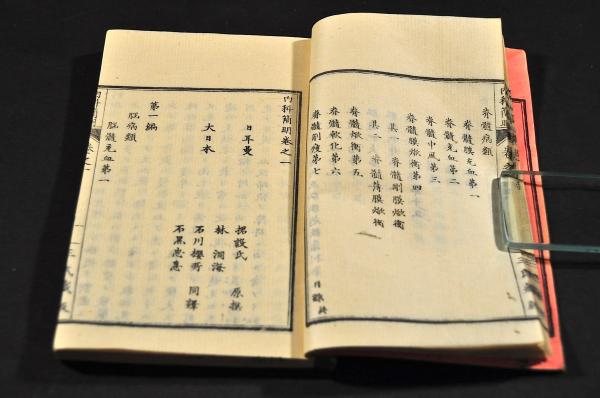 脊髓病類
脊髓膜充血第一
脊髓充血第二
脊髓中風第三
脊髓膜焮衝第四
其一 脊髓剛膜焮衝
其二 脊髓薄膜焮衝
脊髓焮衝第五
脊髓軟化第六
脊髓削瘦第七
目錄終
內科簡明卷之一
日耳曼
原撰
大日本
林 洞海
石川櫻所 同譯
石黑忠悳
第一編
腦病類
腦髓充血第一